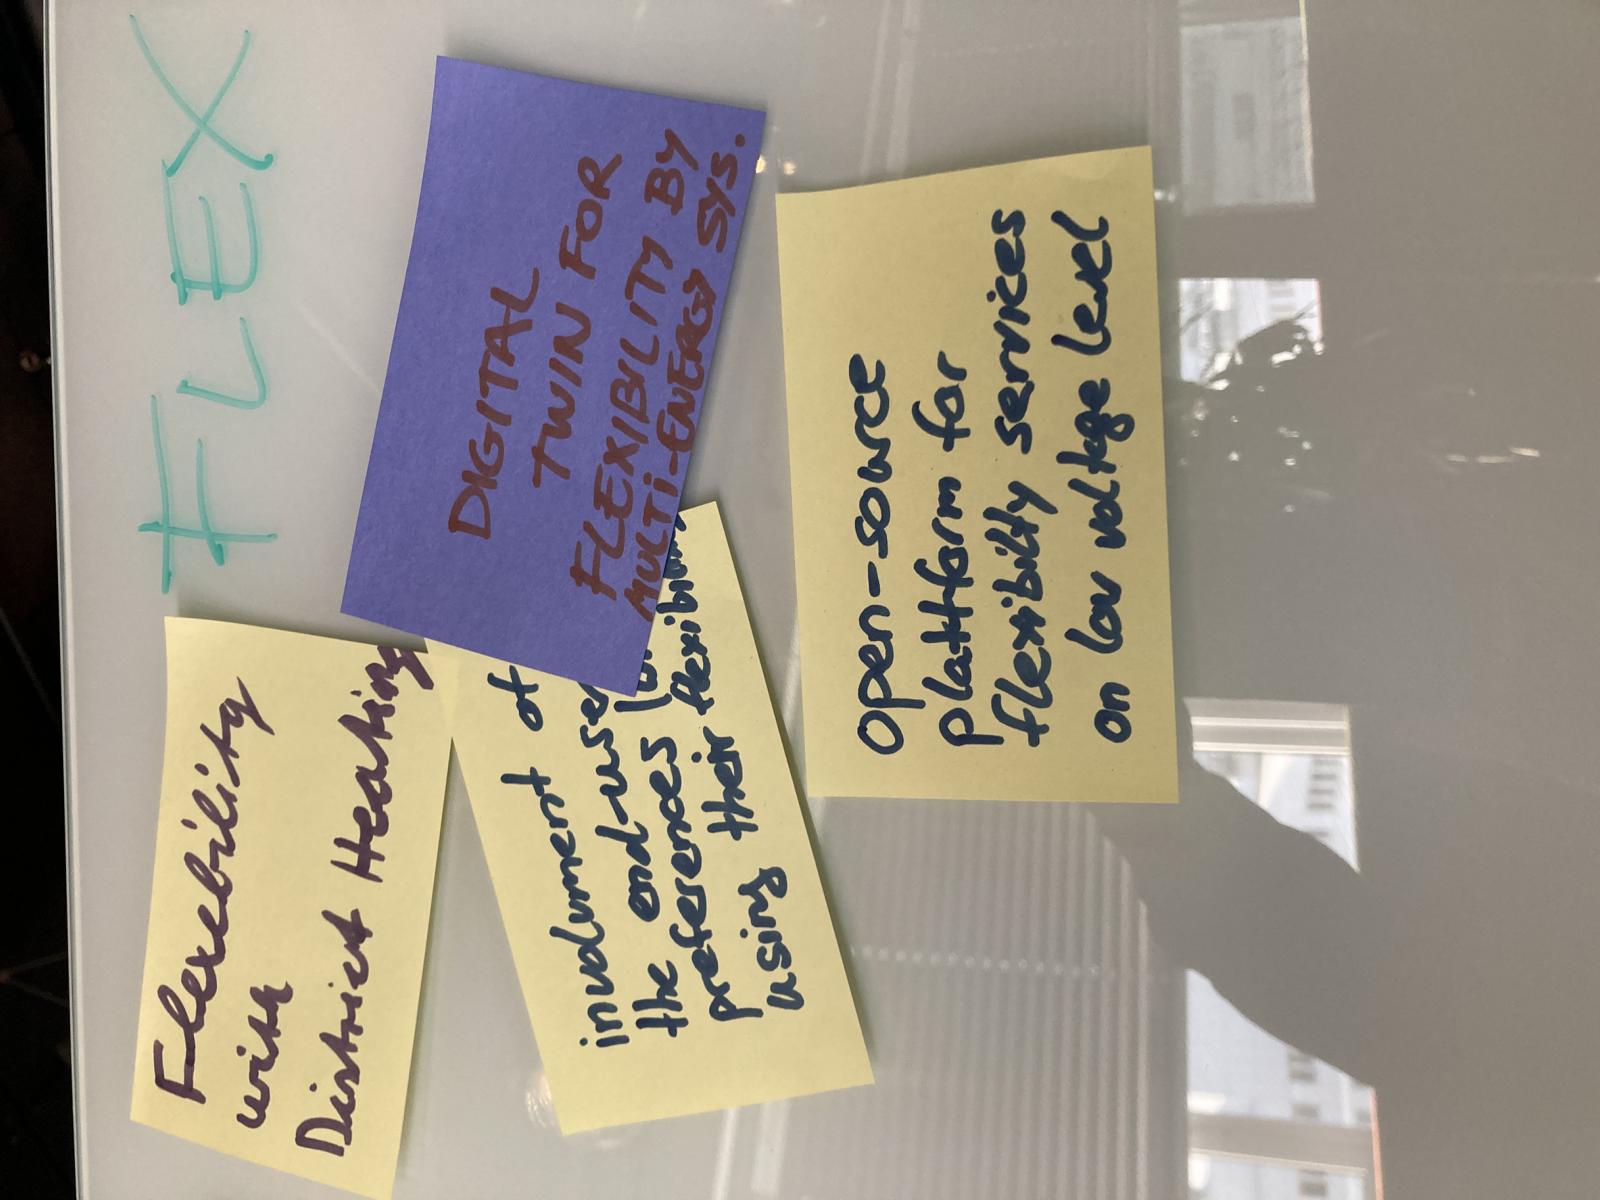 FLEX
Flexebility
with
District Heating
DIGITAL
TWIN FOR
FLEXIBILITY BY
MULTI-ENERGY SYS.
involvment of
the end-user
preferences
using their flexibility
open-source
platform for
flexibility services
on low voltage level